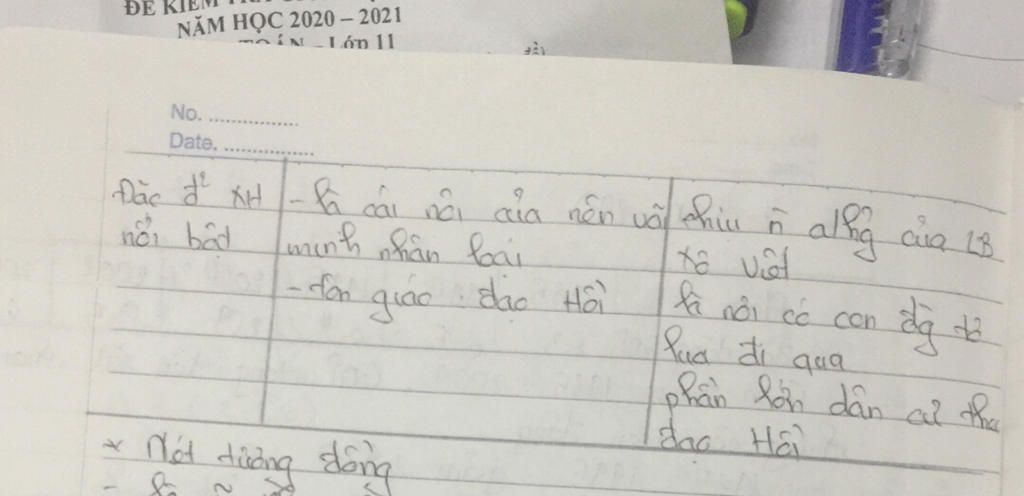 ĐỀ KIỂM
NĂM HỌC 2020 – 2021
TOÁN - Lớp 11
No.
Date.
Đặc đ² XH
nổi bật
- là cái nôi của nền văn
minh nhân loại
- tôn giáo: đạo Hồi
chịu n̄ ahg của LB
Xô Viết
là nơi có con đg tơ
lụa đi qua
phần lớn dân cư theo
đạo Hồi
* Nét tương đồng